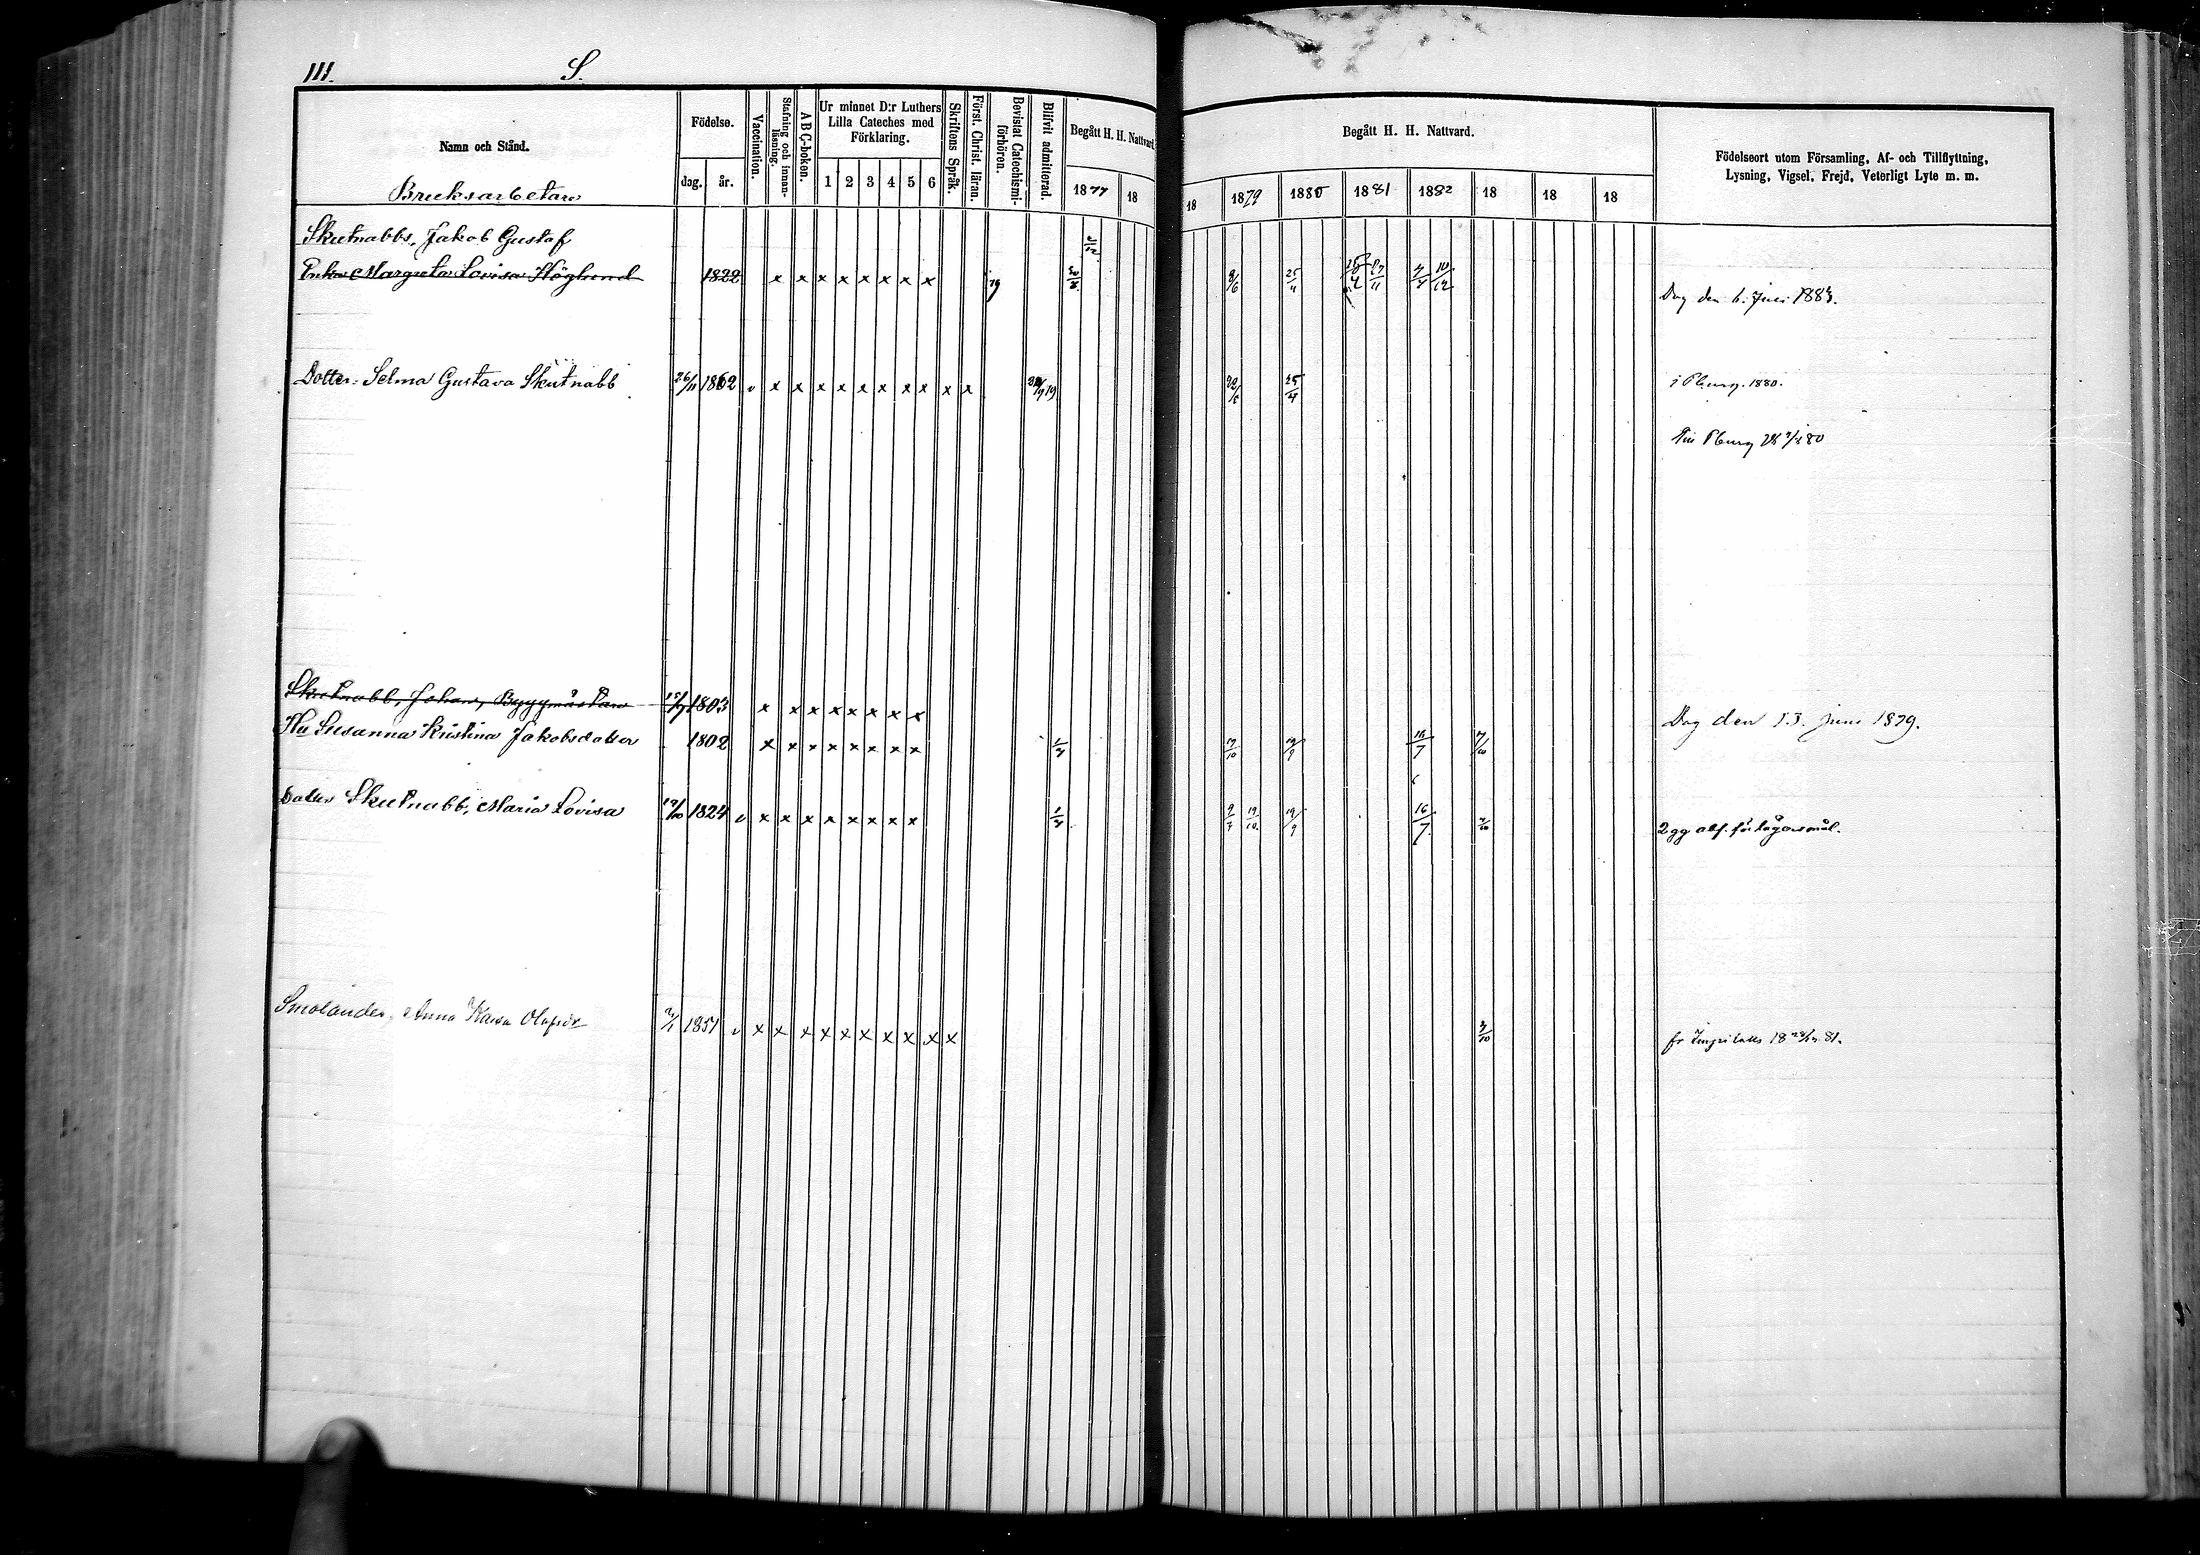 111.
S.
Namn och Stånd.
Bruksarbetare
Födelse.
dag. år.
Vaccination.
Stafning och innanläsning.
ABC-boken.
Ur minnet D:r Luthers Lilla Cateches med Förklaring.
1 2 3 4 5 6
Skriftens Språk.
Först. Christ. läran.
Bevistat Catechismiförhören.
Blifvit admitterad.
Begått H. H. Nattvard.
1877 18
Begått H. H. Nattvard.
18 1879 1880 1881 1882 18 18 18
Födelseort utom Församling, Af- och Tillflyttning,
Lysning, Vigsel, Frejd, Veterligt Lyte m. m.
Skutnabbs, Jakob Gustaf
Enka Margreta Lovisa Höglund 1822 x x x x x x x x 79 9/6 25/4 27/11 10/12
Död den 6. Juni 1883.
Dotter: Selma Gustava Skutnabb 26/11 1862 v x x x x x x x x x x 25/4 i Pburg. 1880.
Skutnabb, Johan, Byggmästare 15/7 1803 x x x x x x x x Dog den 13. juni 1879.
Hu Susanna Kristina Jakobsdotter 1802 x x x x x x x x 19/10 19/9 16/7
Dotter Skutnabb, Maria Lovisa 19/10 1824 v x x x x x x x x 9/7 19/10 19/9 16/7 2 gg abs. för lägersmål.
Smolander, Anna Kaisa Olofsdr 1851 v x x x x x x x x x 18 81.